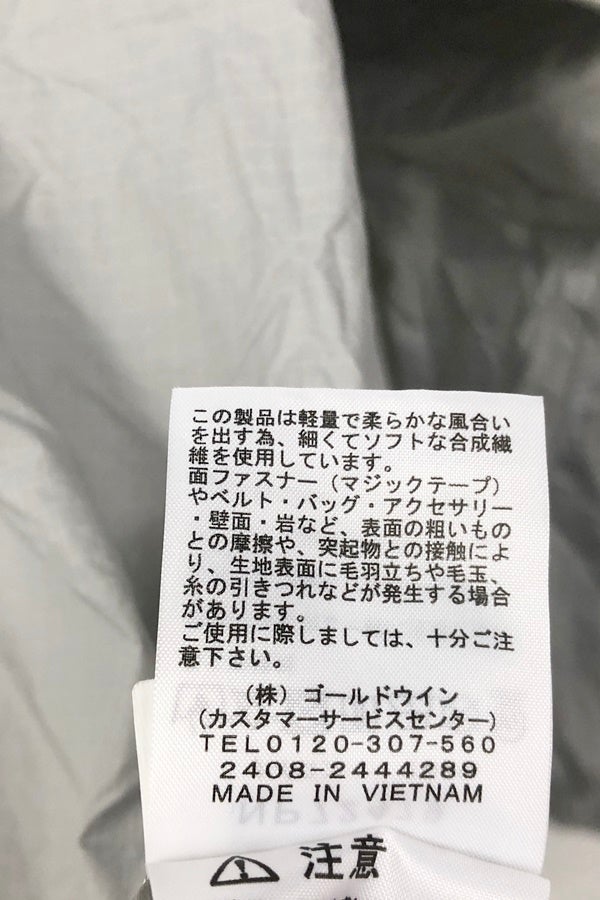 この製品は軽量で柔らかな風合い
を出す為、細くてソフトな合成繊
維を使用しています。
面ファスナー（マジックテープ）
やベルト・バッグ・アクセサリー
・壁面・岩など、表面の粗いもの
との摩擦や、突起物との接触によ
り、生地表面に毛羽立ちや毛玉、
糸の引きつれなどが発生する場合
があります。
ご使用に際しましては、十分ご注
意下さい。
（株）ゴールドウイン
（カスタマーサービスセンター）
TEL0120-307-560
2408-2444289
MADE IN VIETNAM
注意